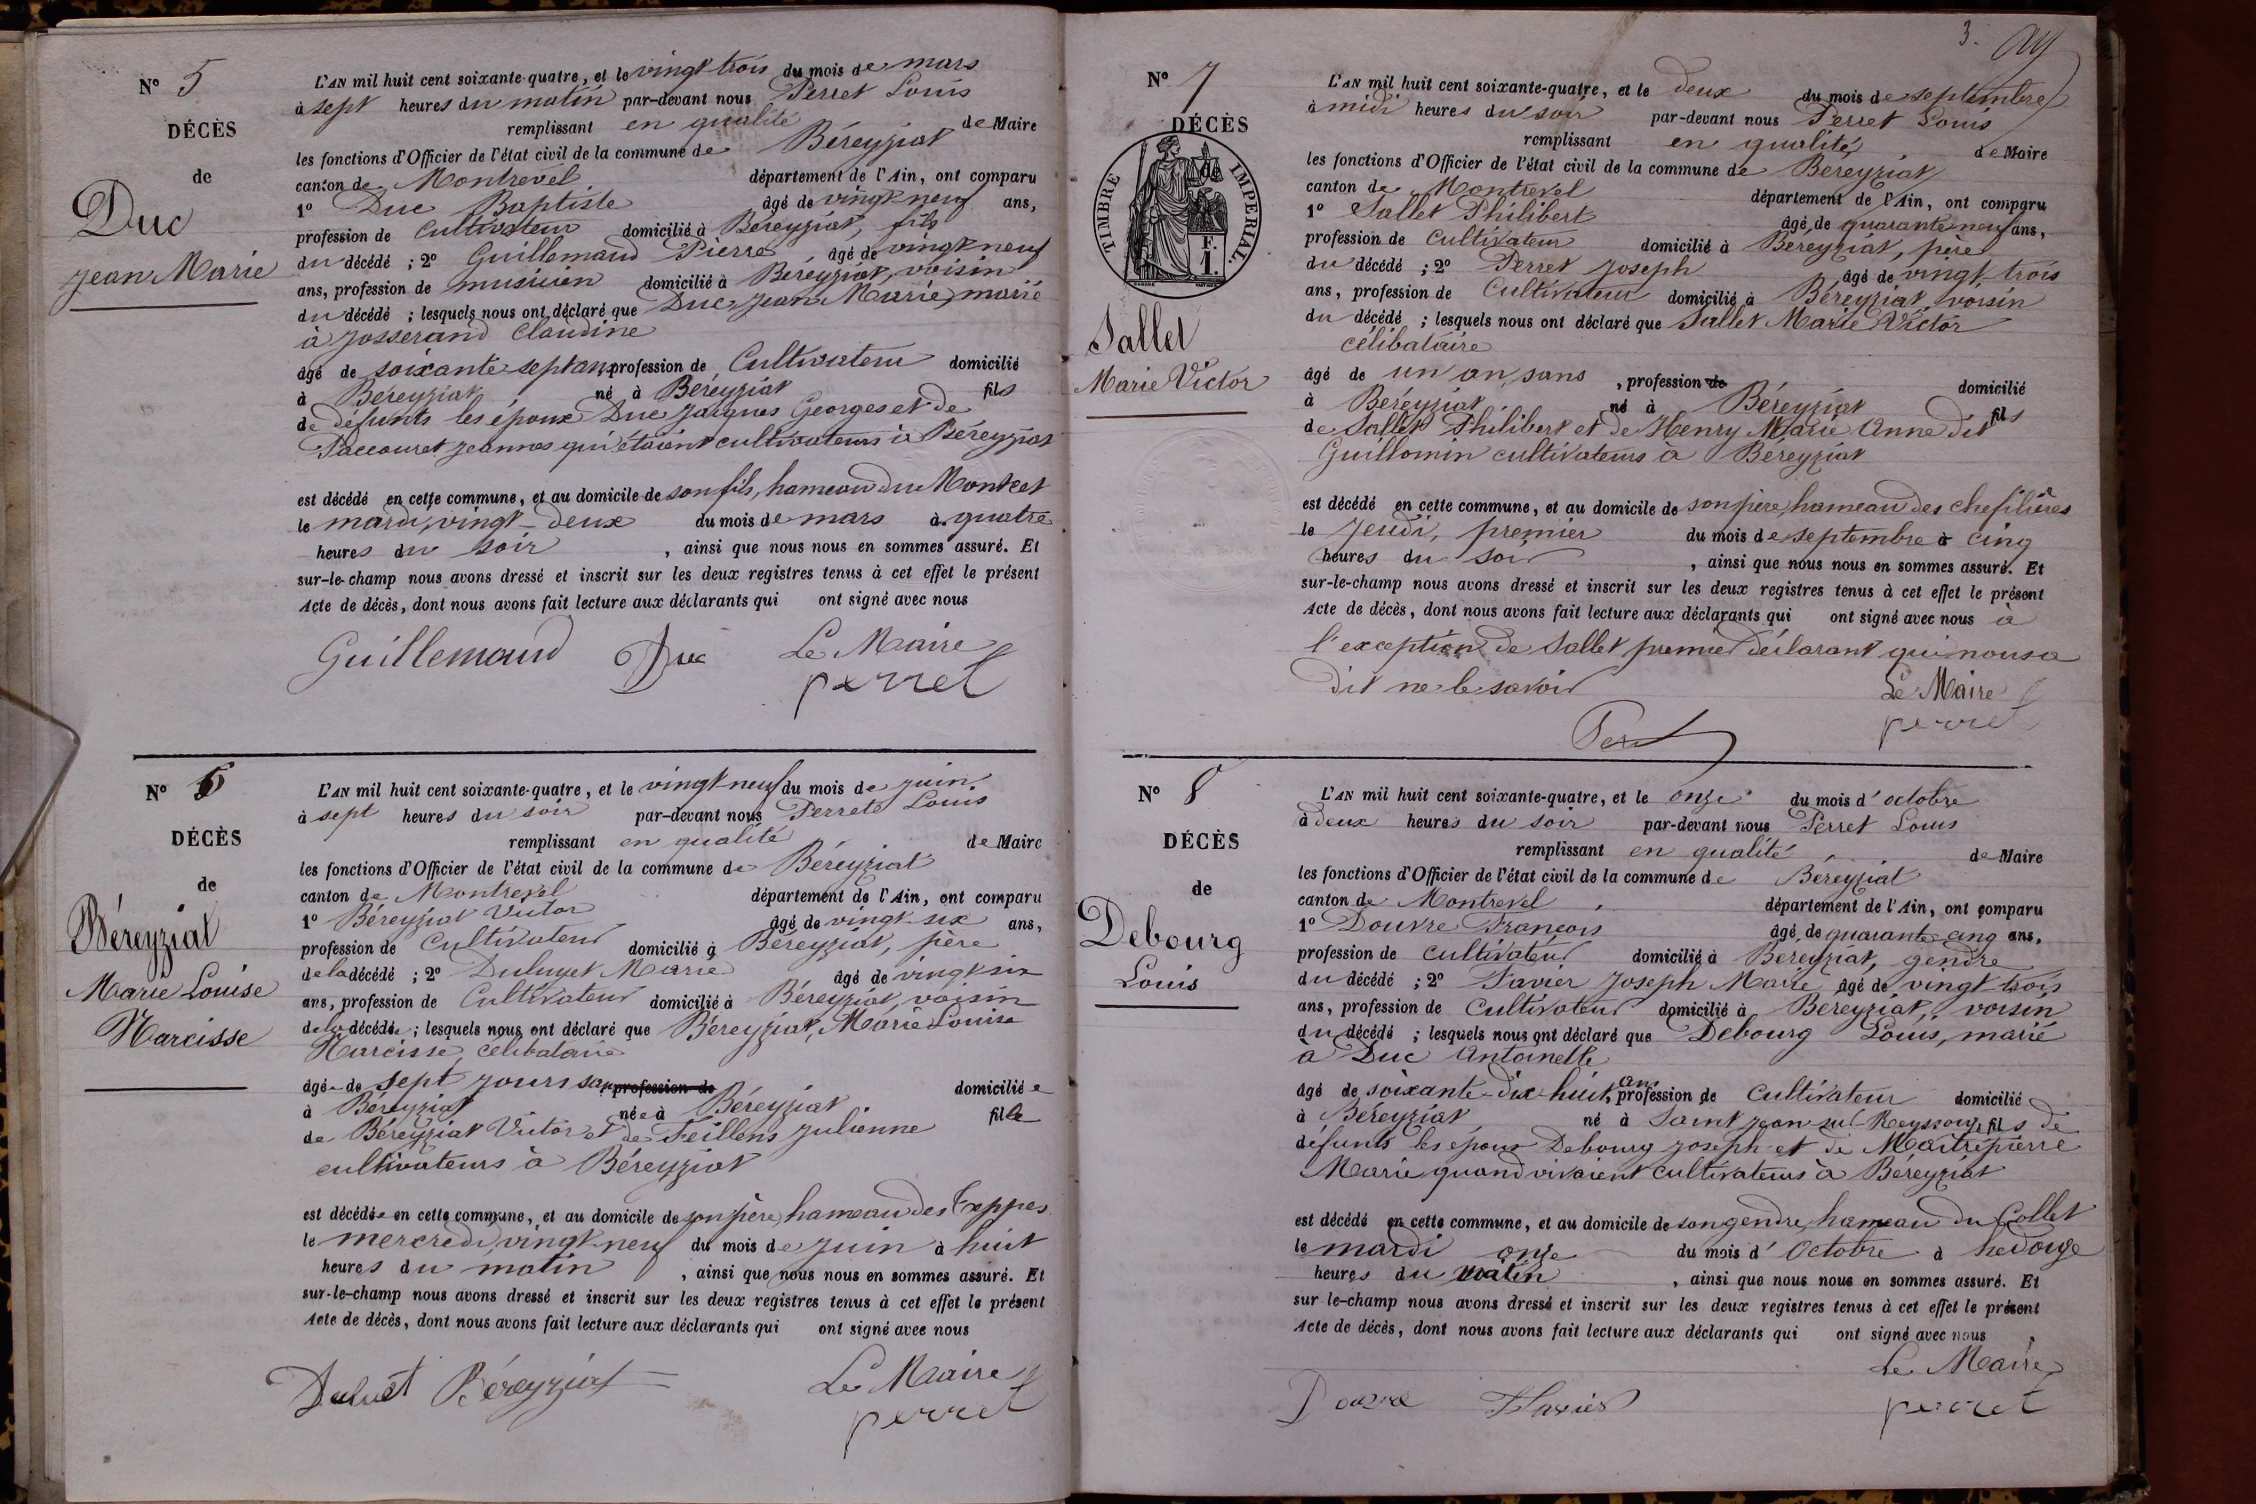 N° 5
DÉCÈS
de
Duc
Jean Marie
L'AN mil huit cent soixante-quatre, et le vingt trois du mois de mars
à sept heures du matin par-devant nous Perret Louis
remplissant en qualité de Maire
les fonctions d'Officier de l'état civil de la commune de Béreyziat
canton de Montrevel département de l'Ain, ont comparu
1° Duc Baptiste âgé de vingt neuf ans,
profession de Cultivateur domicilié à Béreyziat, fils
du décédé ; 2° Guillemaud Pierre âgé de vingt neuf
ans, profession de musicien domicilié à Béreyziat, voisin
du décédé ; lesquels nous ont déclaré que Duc, Jean Marie, marié
à Josserand Claudine
âgé de soixante sept ans profession de Cultivateur domicilié
à Béreyziat né à Béreyziat fils
de défunts les époux Duc Jacques Georges et de
Paccouret Jeanne qui étaient cultivateurs à Béreyziat
est décédé en cette commune, et au domicile de son fils, hameau du Montcet
le mardi, vingt-deux du mois de mars à quatre
heures du soir , ainsi que nous nous en sommes assuré. Et
sur-le-champ nous avons dressé et inscrit sur les deux registres tenus à cet effet le présent
Acte de décès, dont nous avons fait lecture aux déclarants qui ont signé avec nous
Guillemaud Duc Le Maire
perret
N° 6
DÉCÈS
de
Béreyziat
Marie Louise
Narcisse
L'AN mil huit cent soixante-quatre, et le vingt neuf du mois de juin
à sept heures du soir par-devant nous Perret Louis
remplissant en qualité de Maire
les fonctions d'Officier de l'état civil de la commune de Béreyziat
canton de Montrevel département de l'Ain, ont comparu
1° Béreyziat Victor âgé de vingt six ans,
profession de Cultivateur domicilié à Béreyziat, père
de la décédé ; 2° Duluyet Marie âgé de vingt six
ans, profession de Cultivateur domicilié à Béreyziat, voisin
de la décédée ; lesquels nous ont déclaré que Béreyziat, Marie Louise
Narcisse, célibataire
âgée de sept jours sans profession de domiciliée
à Béreyziat née à Béreyziat fille
de Béreyziat Victor et de Feillens Julienne
cultivateurs à Béreyziat
est décédée en cette commune, et au domicile de son père, hameau des Teppes
le mercredi, vingt-neuf du mois de juin à huit
heures du matin , ainsi que nous nous en sommes assuré. Et
sur-le-champ nous avons dressé et inscrit sur les deux registres tenus à cet effet le présent
Acte de décès, dont nous avons fait lecture aux déclarants qui ont signé avec nous
Béreyziat Le Maire
perret
3.
N° 7
DÉCÈS
de
TIMBRE IMPERIAL.
F. I.
Sallet
Marie Victor
L'AN mil huit cent soixante-quatre, et le deux du mois de septembre
à midi heures du soir par-devant nous Perret Louis
remplissant en qualité de Maire
les fonctions d'Officier de l'état civil de la commune de Béreyziat
canton de Montrevel département de l'Ain, ont comparu
1° Sallet Philibert âgé de quarante neuf ans,
profession de Cultivateur domicilié à Béreyziat, père
du décédé ; 2° Perret Joseph âgé de vingt trois
ans, profession de Cultivateur domicilié à Béreyziat, voisin
du décédé ; lesquels nous ont déclaré que Sallet Marie Victor
célibataire
âgé de un an, sans , profession de domicilié
à Béreyziat né à Béreyziat fils
de Sallet Philibert et de Henry Marie Anne dit
Guillomin cultivateurs à Béreyziat
est décédé en cette commune, et au domicile de son père, hameau des chefilières
le jeudi, premier du mois de septembre à cinq
heures du soir , ainsi que nous nous en sommes assuré. Et
sur-le-champ nous avons dressé et inscrit sur les deux registres tenus à cet effet le présent
Acte de décès, dont nous avons fait lecture aux déclarants qui ont signé avec nous à
l'exception de Sallet premier déclarant qui nous a
dit ne le savoir Le Maire
perret
N° 8
DÉCÈS
de
Debourg
Louis
L'AN mil huit cent soixante-quatre, et le onze du mois d'octobre
à deux heures du soir par-devant nous Perret Louis
remplissant en qualité de Maire
les fonctions d'Officier de l'état civil de la commune de Béreyziat
canton de Montrevel département de l'Ain, ont comparu
1° Douvre François âgé de quarante cinq ans,
profession de cultivateur domicilié à Béreyziat, gendre
du décédé ; 2° Favier Joseph Marie âgé de vingt trois
ans, profession de Cultivateur domicilié à Béreyziat, voisin
du décédé ; lesquels nous ont déclaré que Debourg Louis, marié
à Duc Antoinette
âgé de soixante-dix-huit ans, profession de Cultivateur domicilié
à Béreyziat né à Saint Jean sur Reyssouze fils de
défunts les époux Debourg Joseph et de Maîtrepierre
Marie quand vivaient cultivateurs à Béreyziat
est décédé en cette commune, et au domicile de son gendre, hameau du Collet
le mardi onze du mois d'Octobre à
heures du matin , ainsi que nous nous en sommes assuré. Et
sur-le-champ nous avons dressé et inscrit sur les deux registres tenus à cet effet le présent
Acte de décès, dont nous avons fait lecture aux déclarants qui ont signé avec nous
Le Maire
Douvre Favier perret